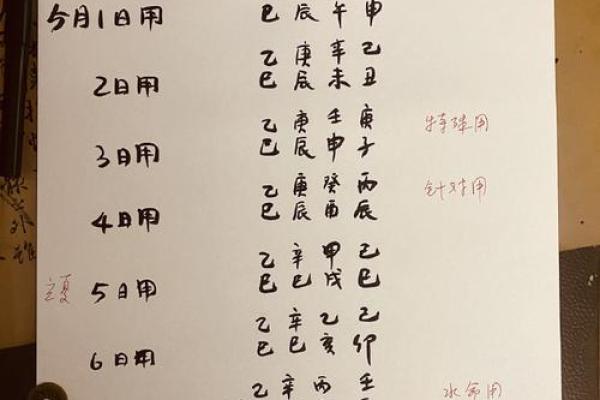 5月1日用 巳 辰 午 申
乙 庚 辛 己
2日用 巳 辰 未 丑
乙 庚 壬 庚
3日用 巳 辰 申 子 特殊用
乙 庚 癸 丙
4日用 巳 辰 酉 辰 针对用
乙 辛 甲 己
立夏 5日用 巳 巳 戌 巳
乙 辛 乙 己
6日用 巳 巳 亥 卯
乙 辛 丙 壬
水命用